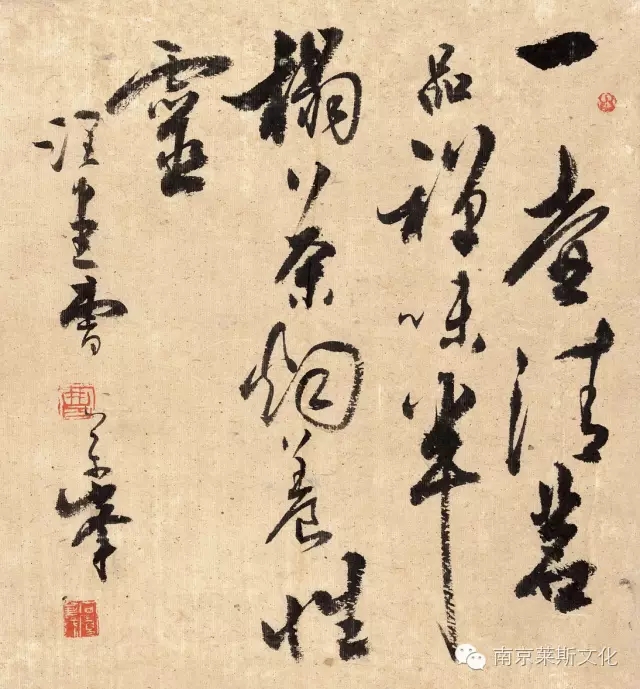 一壺清茗
品禪味半
榻茶烟養性
靈
曹學峯
南京莱斯文化